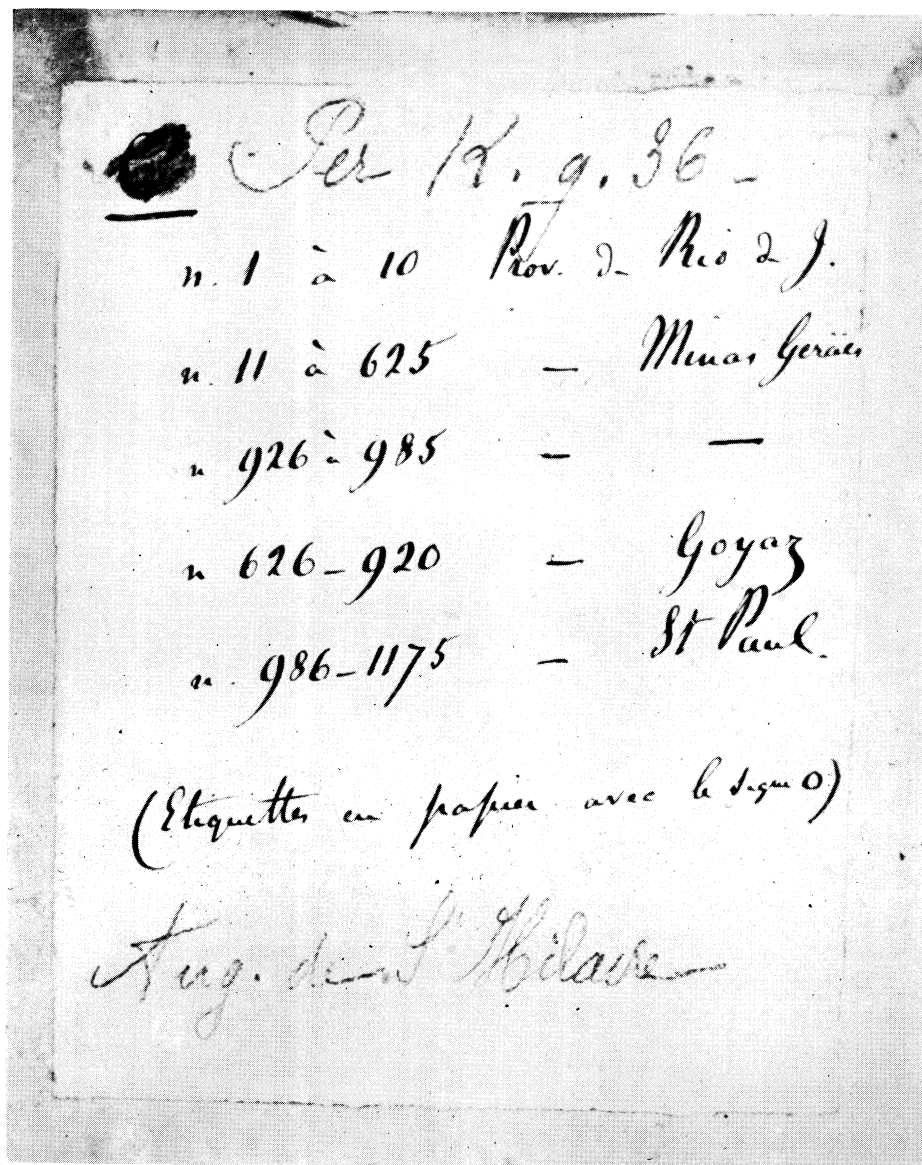 Per K. g. 36 -
n. 1 à 10 Prov. de Rio de J.
n. 11 à 625 — Minas Geraës
n 926 à 985 — —
n 626 - 920 — Goyaz
n. 986 - 1175 — St Paul.
(Etiquettes en papier avec le signe O)
Aug. de St Hilaire